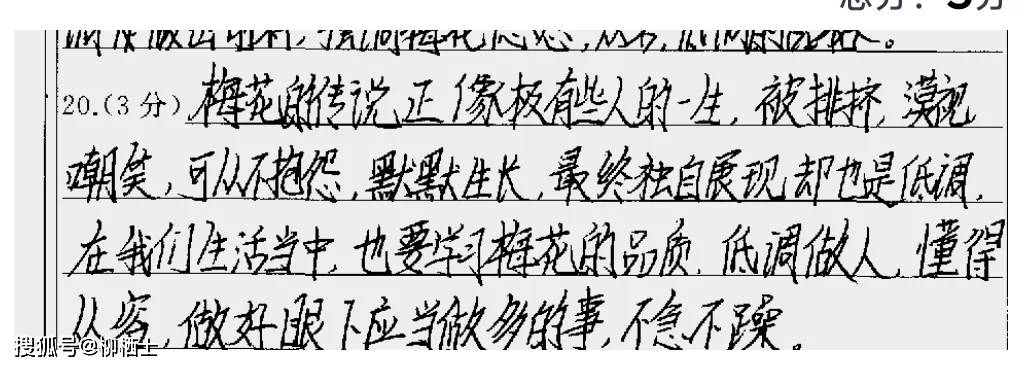 总分：3分
20.(3分) 梅花的传说正像极有些人的一生，被排挤，漠视
嘲笑，可从不抱怨，默默生长，最终独自展现却也是低调，
在我们生活当中，也要学习梅花的品质，低调做人，懂得
从容，做好眼下应当做多的事，不急不躁。
搜狐号@柳栖士